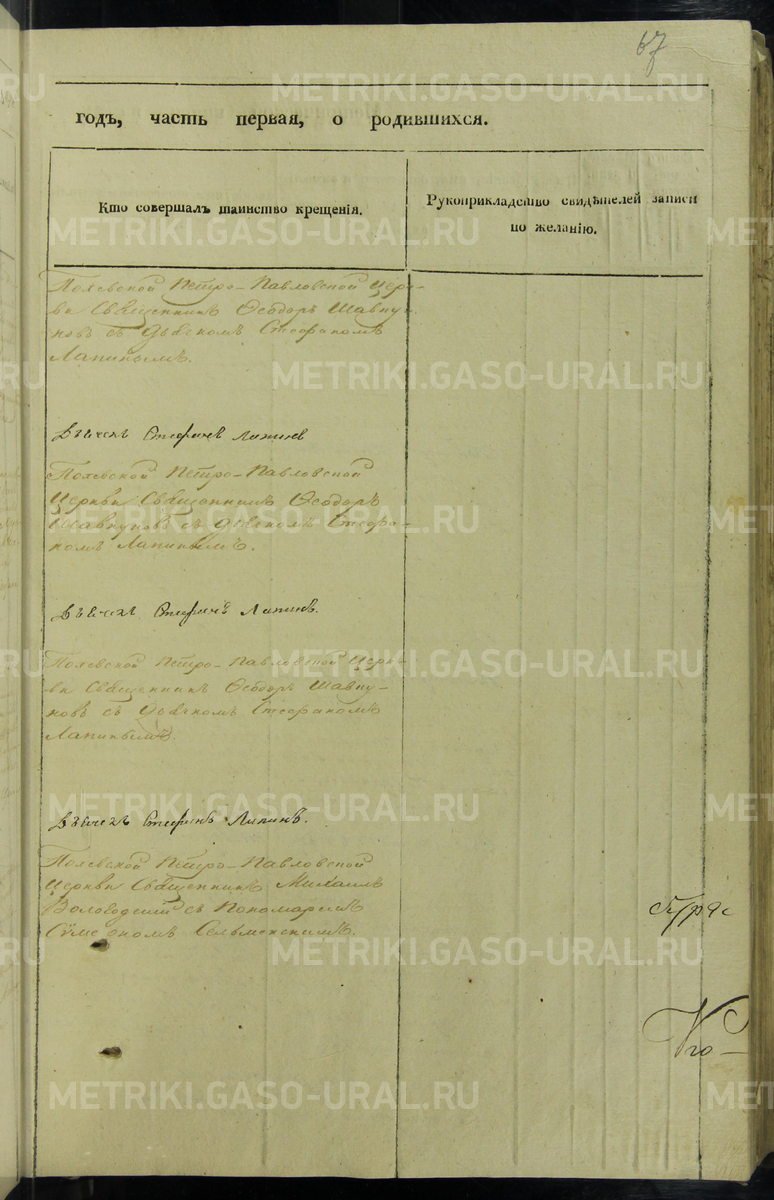 67
годъ, часть первая, о родившихся.
Кто совершалъ таинство крещенія.
Рукоприкладство свидѣтелей записи
по желанію.
Полевской Петро-Павловской Церк-
ви Священникъ Ѳеодоръ Шавку-
новъ съ Дьячкомъ Стефаномъ
Лапинымъ.
Дьячекъ Стефанъ Лапинъ
Полевской Петро-Павловской
Церкви Священникъ Ѳеодоръ
Шавкуновъ съ Дьячкомъ Стефа-
номъ Лапинымъ.
Дьячекъ Стефанъ Лапинъ.
Полевской Петро-Павловской Церк-
ви Священникъ Ѳеодоръ Шавку-
новъ съ Дьячкомъ Стефаномъ
Лапинымъ.
Дьячекъ Стефанъ Лапинъ.
Полевской Петро-Павловской
Церкви Священникъ Михаилъ
Вологодский съ Пономаремъ
Сѵмеономъ Сельменскимъ.
METRIKI.GASO-URAL.RU